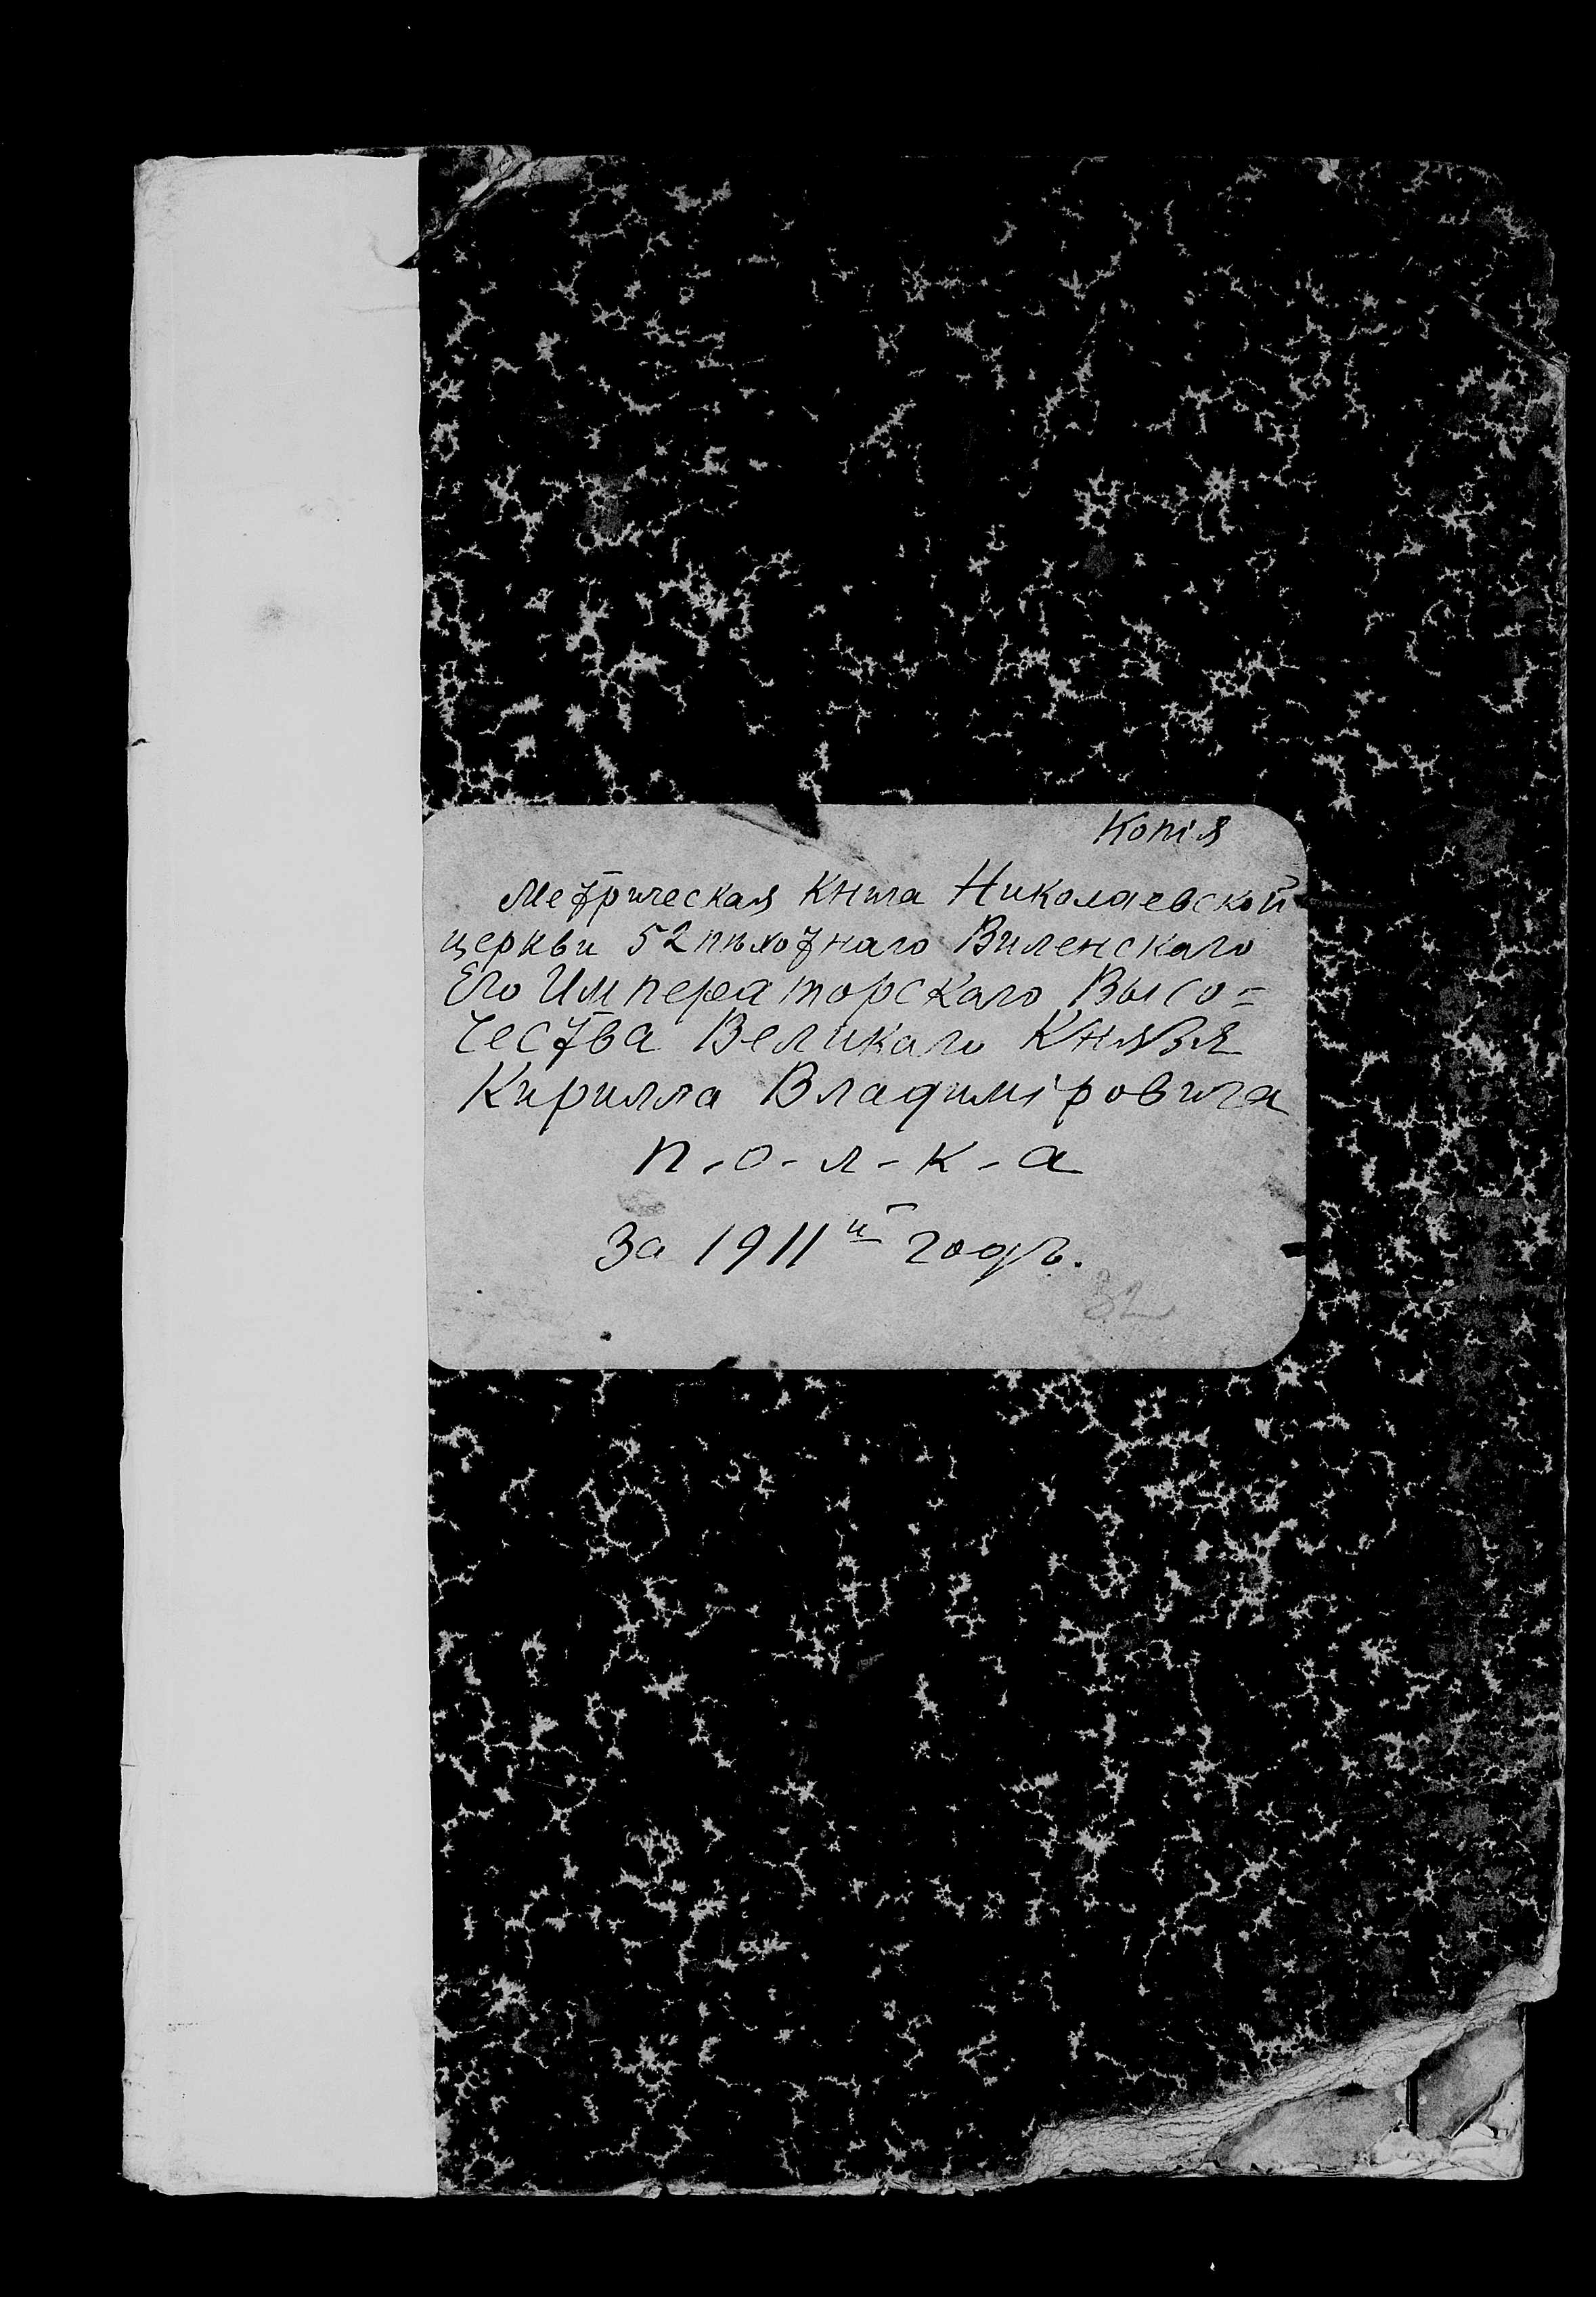 Копія
Метрическая Книга Николаевской
церкви 52 пѣхотнаго Виленскаго
Его Императорскаго Высо=
чества Великаго Князя
Кирилла Владиміровича
п-о-л-к-а
За 1911й годъ.
32